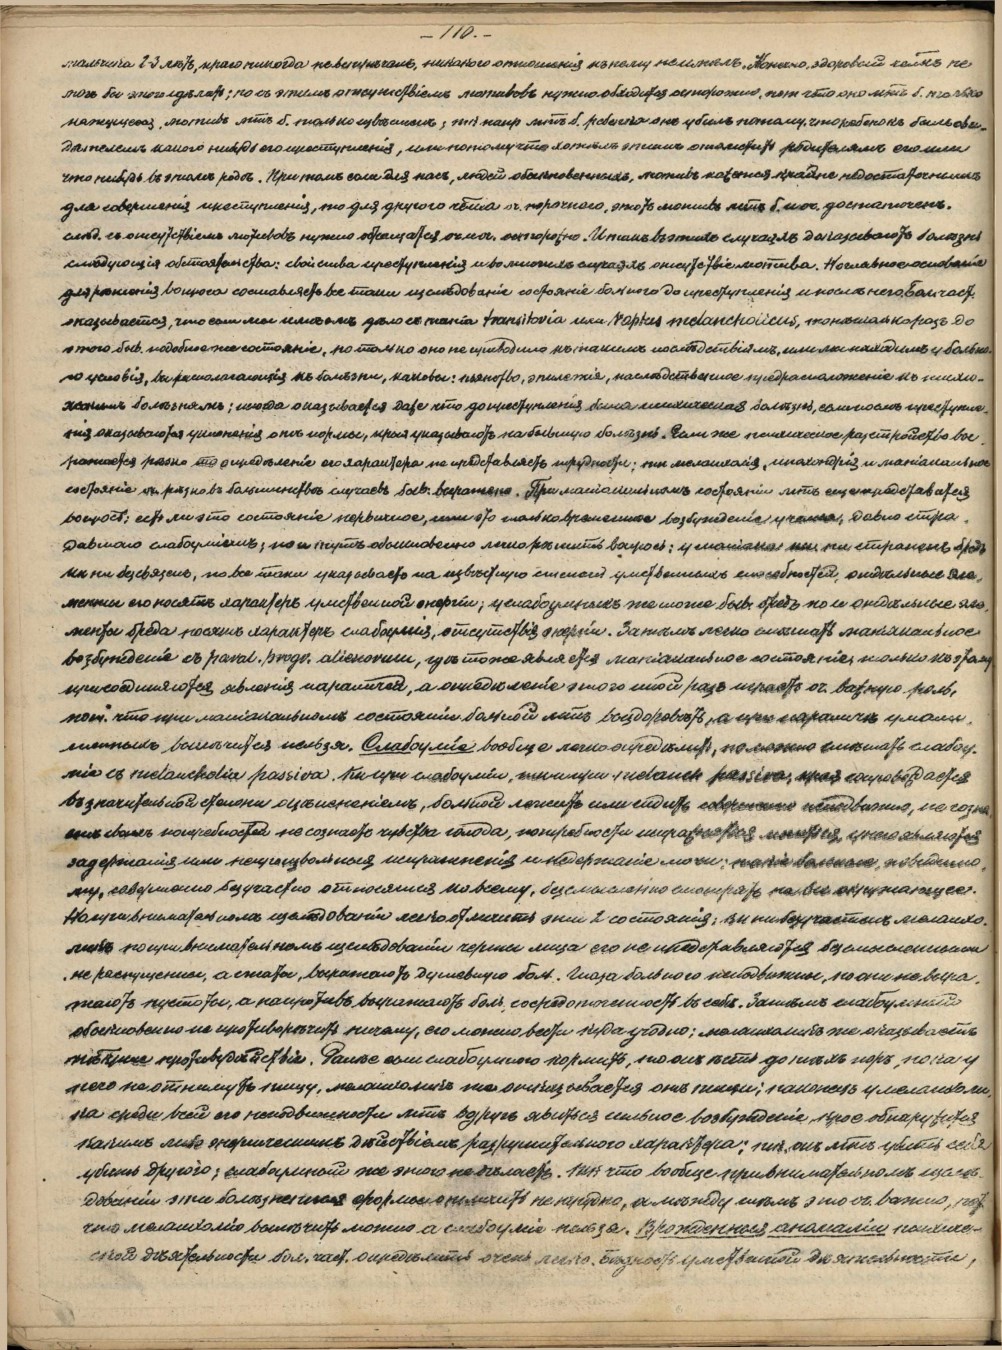 – 110. –
мальчика 2-3 лѣтъ, краго никогда не встрѣчалъ, никакого отношенія къ нему не имѣлъ. Конечно, здоровый челкъ не
могъ бы этого сдѣлать; но съ этимъ отсутствіемъ мотивовъ нужно обходиться осторожно, пот. что оно мтъ б. только
кажущееся, мотивъ мтъ б. только неизвѣстенъ; такъ напр. мтъ б. ребенка онъ убилъ потому, что ребенокъ былъ сви-
дѣтелемъ какого нибудь его преступленія, или потому что хотѣлъ этимъ отомстить родителямъ его или
что нибудь въ этомъ родѣ. При томъ если для насъ, людей обыкновенныхъ, мотивъ кажется крайне недостаточнымъ
для совершенія преступленія, то для другого члка оч. порочнаго, этотъ мотивъ мтъ б. и оч. достаточенъ.
слѣд. съ отсутствіемъ мотивовъ нужно обращаться оч. осторожно. Итакъ въ этихъ случаяхъ доказываютъ болѣзнь
слѣдующія обстоятельства: свойства преступленія и во многихъ случаяхъ отсутствіе мотива. Но главное основаніе
для рѣшенія вопроса составляетъ все таки изслѣдованіе состоянія больного до преступленія и послѣ него. Бол. част.
оказывается, что если мы имѣемъ дѣло съ mania transitoria или raptus melancholicus, то нѣсколько разъ до
этого быв. подобное же состояніе, но только оно не приводило къ такимъ послѣдствіямъ, или мы находимъ у больно-
го условія, располагающія къ болѣзни, каковы: пьянство, эпилепсія, наслѣдственное предрасположеніе къ психи-
ческимъ болѣзнямъ; иногда оказывается даже что до преступленія была психическая болѣзнь, или послѣ преступле-
нія оказываются уклоненія отъ нормы, крыя указываютъ на бывшую болѣзнь. Если же психическое разстройство вы-
ражается рѣзко то опредѣленіе его характера не представляетъ трудности; такъ меланхолія, ипохондрія и маніакальное
состояніе оч. рѣзко въ большинствѣ случаевъ быв. выражено. При маніакальномъ состояніи мтъ еще представиться
вопросъ: есть ли это состояніе первичное, или это только временное возбужденіе у члка, давно стра-
давшаго слабоуміемъ; но и тутъ обыкновенно легко рѣшить вопросъ: у маніака какъ ни страненъ бредъ
какъ ни безсвязенъ, но все таки указываетъ на извѣстную степень умственныхъ способностей, отдѣльные эле-
менты его носятъ характеръ умственной энергіи; у слабоумныхъ же може быв. бредъ но и отдѣльные эле-
менты бреда носятъ характеръ слабоумія, отсутствія энергіи. Затѣмъ легко смѣшать маніакальное
возбужденіе съ paral. progr. alienorum, гдѣ тоже является маніакальное состояніе, только къ этому
присоединяются явленія параличей, а опредѣленіе этого иной разъ играетъ оч. важную роль,
пот. что при маніакальномъ состояніи больной мтъ выздоровѣть, а при параличѣ умали-
шенныхъ вылѣчиться нельзя. Слабоуміе вообще легко опредѣлить, но можно смѣшать слабоу-
міе съ melancholia passiva. Какъ при слабоуміи, такъ и при melanch passiva, края сопровождается
въ значительной степени оцѣпененіемъ, больной лежитъ или сидитъ совершенно неподвижно, не созна-
етъ своихъ потребностей не сознаетъ чувства голода, потребности испражняться имѣется, у него являются
задержанія или непроизвольныя испражненія и недержаніе мочи; такіе больные, повидимо-
му, совершенно безучастно относятся ко всему, безсмысленно смотрятъ на все окружающее.
Но при внимательномъ изслѣдованіи легко отличить эти 2 состоянія: какъ ни безучастенъ меланхо-
ликъ но при внимательномъ изслѣдованіи черты лица его не представляются безсмысленными
не распущены, а сжаты, выражаютъ душевную боль. Глаза больного неподвижны, но они не выра-
жаютъ пустоты, а напротивъ выражаютъ боль, сосредоточенность въ себѣ. Затѣмъ слабоумный
обыкновенно не противорѣчитъ ничему, его можно вести куда угодно; меланхоликъ же оказываетъ
противудѣйствіе. Далѣе если слабоумного кормить, то онъ ѣстъ до тѣхъ поръ, пока у
него не отнимутъ пищу, меланхоликъ же отказывается отъ пищи; наконецъ у меланхоли-
ка среди всей его неподвижности мтъ вдругъ явиться сильное возбужденіе, крое обнаружится
какимъ либо энергическимъ дѣйствіемъ разрушительнаго характера; такъ, онъ мтъ убить себя
убить другого; слабоумный же этого не дѣлаетъ. Такъ что вообще при внимательномъ изслѣ-
дованіи эти болѣзненныя формы отличить не трудно, а между тѣмъ это оч. важно, пот
что меланхолію вылѣчить можно а слабоуміе нельзя. Врожденныя аномаліи психиче-
ской дѣятельности бол. част. опредѣлить очень легко. Бѣдность умственной дѣятельности,